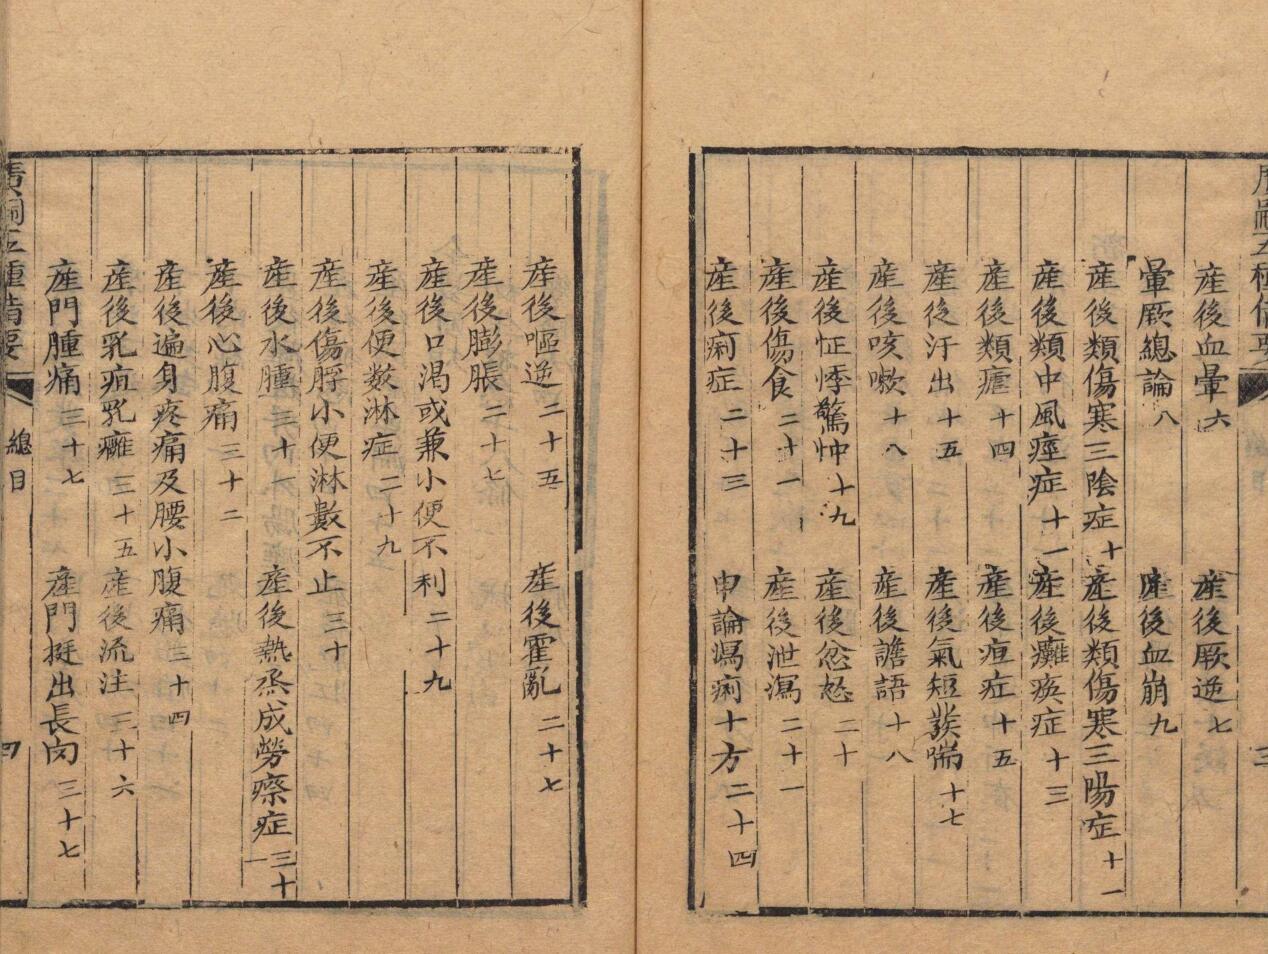 産後血暈 六 産後厥逆 七
暈厥總論 八 産後血崩 九
産後類傷寒三陰症 十 産後類傷寒三陽症 十一
産後類中風痙症 十一 産後癱瘓症 十三
産後類瘧 十四 産後疸症 十五
産後汗出 十五 産後氣短發喘 十七
産後咳嗽 十八 産後譫語 十八
産後怔悸驚忡 十九 産後忿怒 二十
産後傷食 二十一 産後泄瀉 二十一
産後痢症 二十三 申論瀉痢十方 二十四
産後嘔逆 二十五 産後霍亂 二十七
産後膨脹 二十七
産後口渴或兼小便不利 二十九
産後便数淋症 二十九
産後傷脬小便淋數不止 三十
産後水腫 三十一 産後熱烝成勞瘵症 三十一
産後心腹痛 三十二
産後遍身疼痛及腰小腹痛 三十四
産後乳疽乳癰 三十五 産後流注 三十六
産門腫痛 三十七 産門挺出長肉 三十七
廣嗣五種備要 總目 四